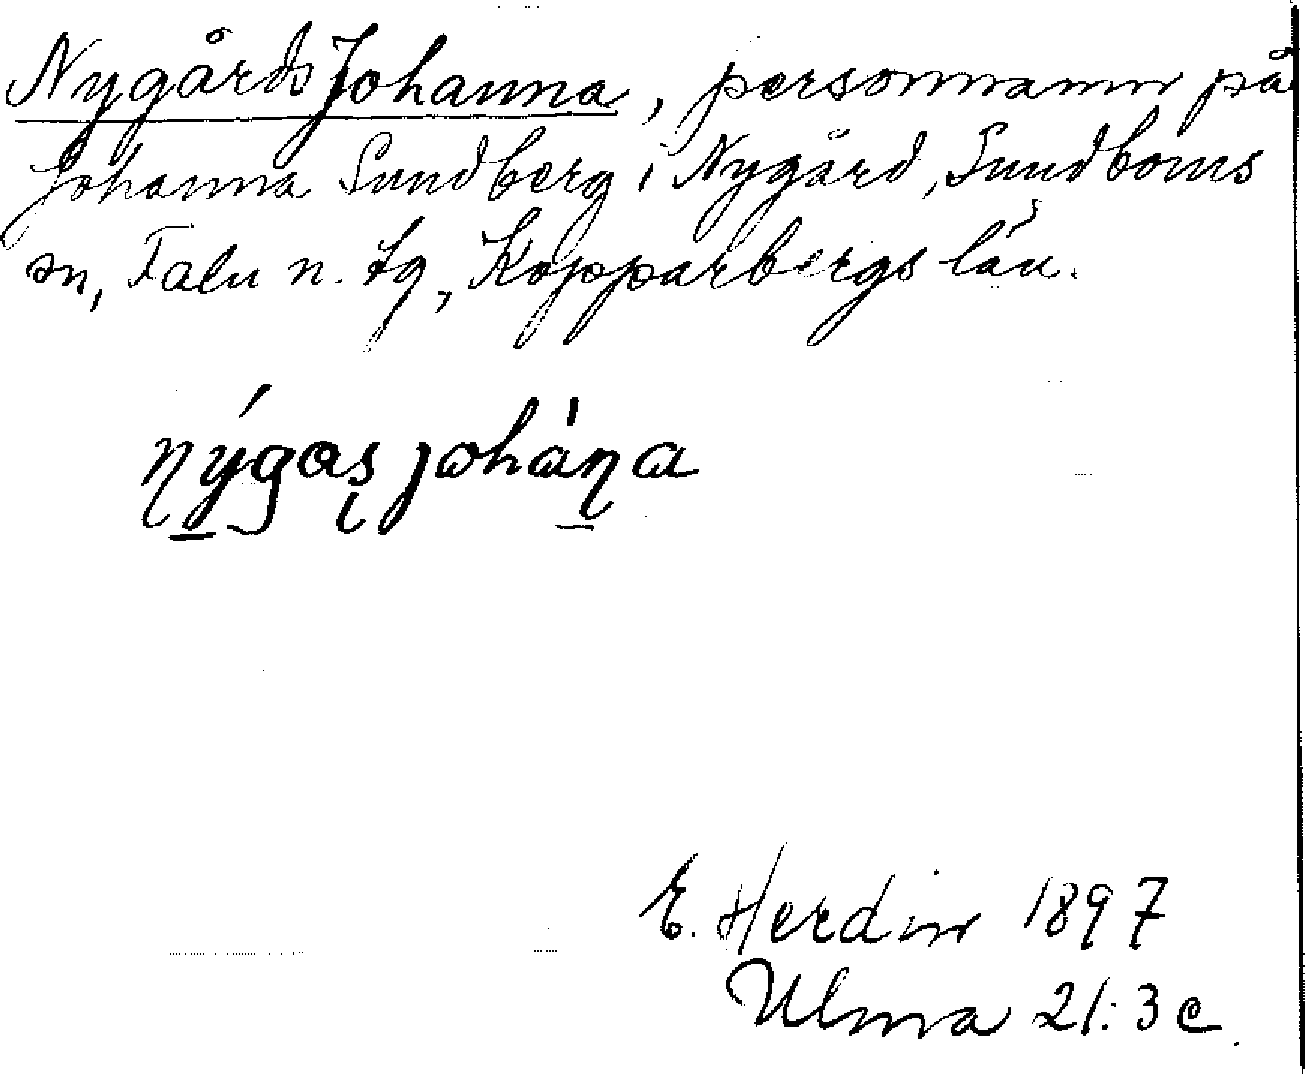 NygårdsJohanna, personnamn på
Johanna Sundberg i Nygård, Sundborns
sn, Falu n. tg, Kopparbergs län.
nýgaṣ johána
E. Herdin 1897
Ulma 21:3 c.